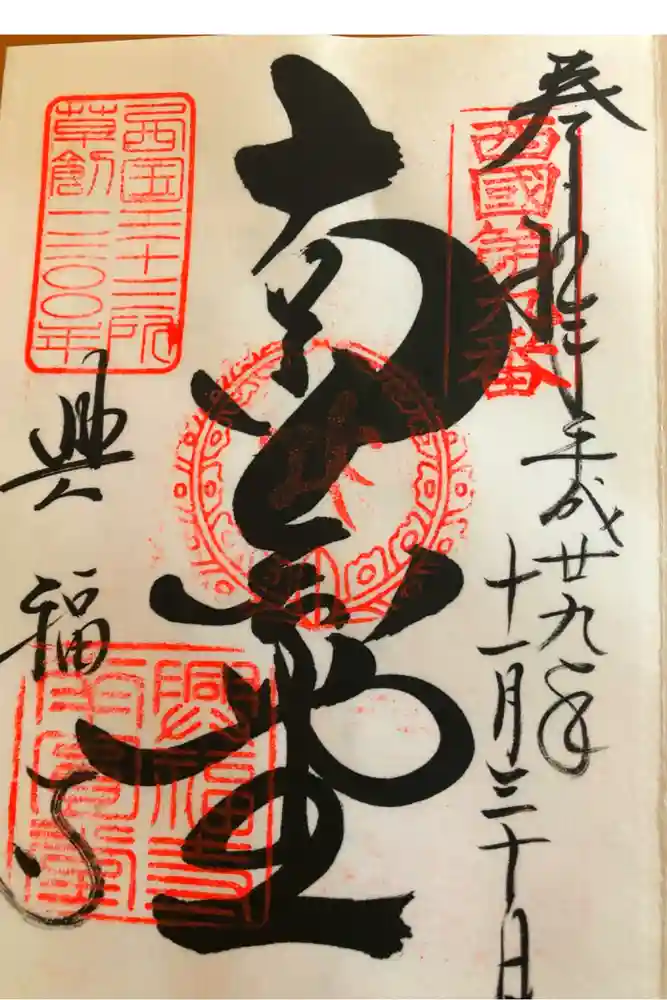 奉拝
平成廿九年
十一月三十日
西國第九番
南圓堂
西国三十三所
草創一三〇〇年
興福寺
興福寺
南圓堂